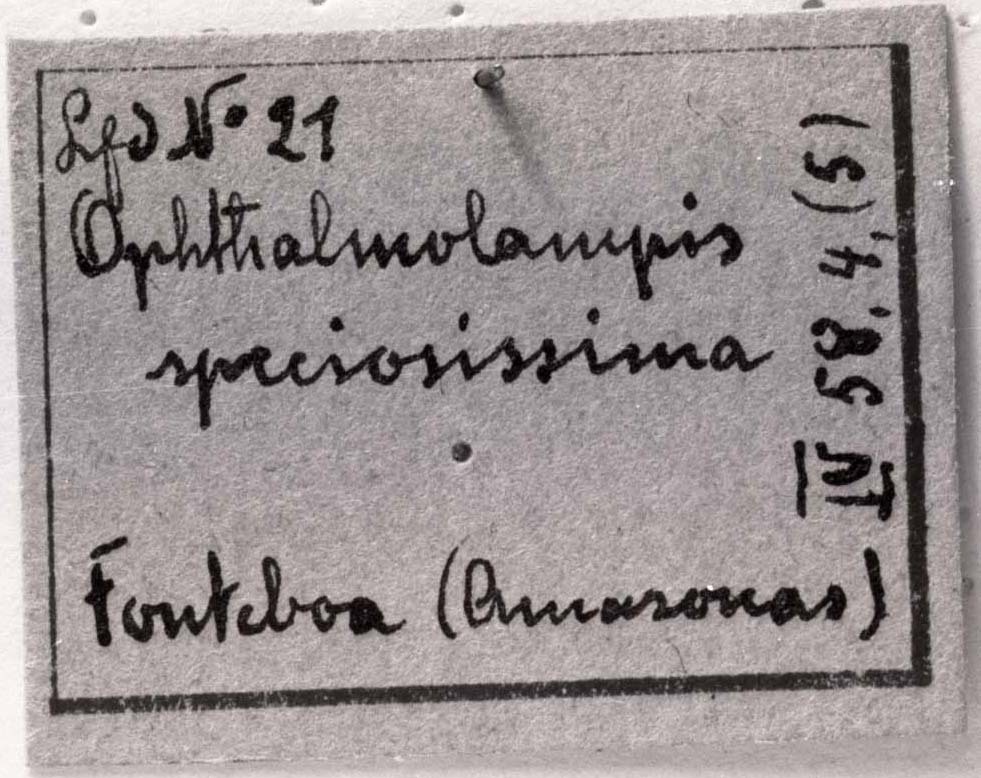 Lfd No 21
Ophthalmolampis
speciosissima
Fonteboa (Amazonas)
IV 58, 4, (5)